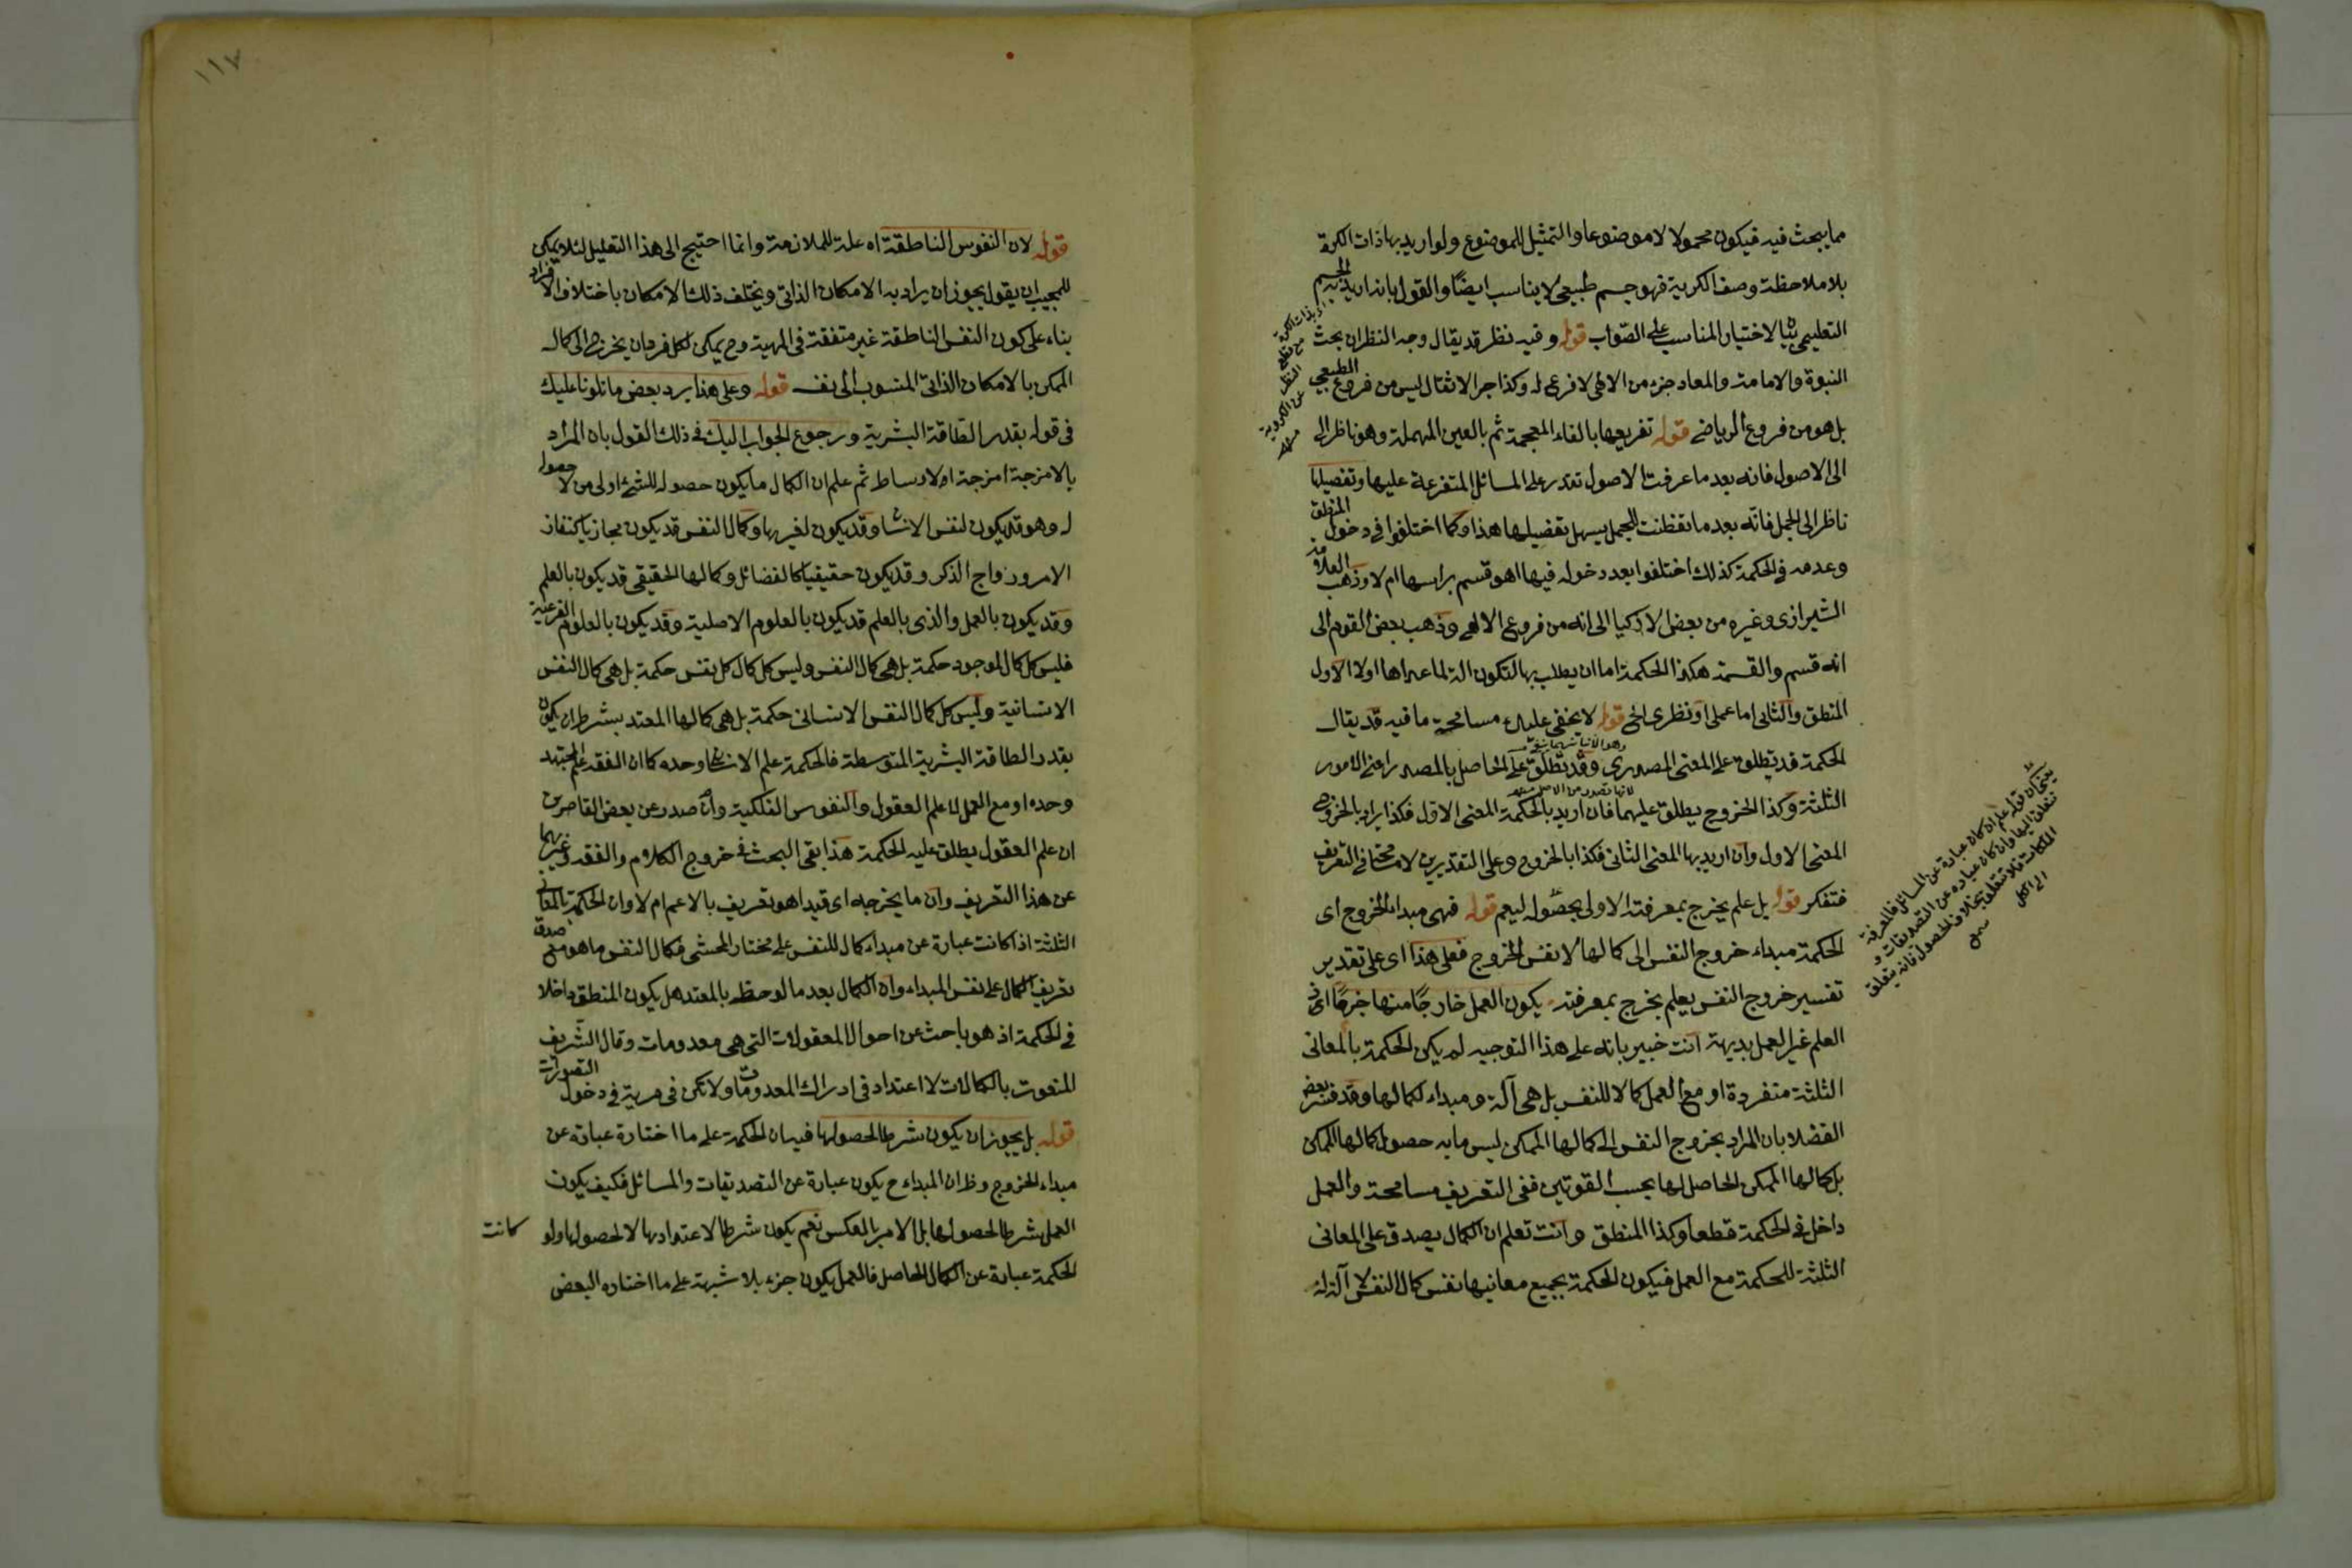 مما يبحث فيه فيكون محمولا لا موضوعا والتمثيل للموضوع ولو اريد بها ذات الكرة
بلا ملاحظة وصف الكرية فهو جسم طبيعى لا يناسب ايضا والقول بانه اريد به الجسم
التعليمى بالاختيار المناسب على الصواب قوله وفيه نظر قد يقال وجه النظر ان بحث
النبوة والامامة والمعاد جزء من الالهى لا فرع له وكذا جر الاثقال ليس من فروع الطبيعى
بل هو من فروع الرياضى قوله تفريعها بالفاء المعجمة ثم بالعين المهملة وهو ناظر الى
الى الاصول فانه بعد ما عرفت الاصول تقتدر على المسائل المتفرعة عليها وتفصيلها
ناظر الى الجمل فانه بعد ما تفطنت للجمل يسهل تفصيلها هذا وكما اختلفوا فى دخول المنطق
وعدمه فى الحكمة كذلك اختلفوا بعد دخوله فيها اهو قسم براسها ام لا وذهب العلامة
الشيرازى وغيره من بعض الاذكيا الى انه من فروع الالهى وذهب بعض القوم الى
انه قسم والقسمة هكذا الحكمة اما ان يطلب بها لتكون الة لما عداها اولا الاول
المنطق والثانى اما عملى او نظرى الخ قوله لا يخفى عليك مسامحة ما فيه قد يقال
الحكمة قد يطلق على المعنى المصدرى وقد تطلق على الحاصل بالمصدر اعنى الامور
الثلثة وكذا الخروج يطلق عليهما فان اريد بالحكمة المعنى الاول فكذا يراد بالخروج
المعنى الاول وان اريد بها المعنى الثانى فكذا بالخروج وعلى التقديرين لا مسامحة فى التعريف
فتفكر قوله بل علم يخرج بمعرفته الاولى بحصوله ليعم قوله فهى مبداء الخروج اى
الحكمة مبداء خروج النفس الى كمالها لا نفس الخروج فعلى هذا اى على تقدير
تفسير خروج النفس بعلم يخرج بمعرفته يكون العمل خارجا منها
العلم غير العمل بديهة انت خبير بانه على هذا التوجيه لم يكن الحكمة بالمعانى
الثلثة منفردة او مع العمل كمالا للنفس بل هى آلة ومبداء لكمالها وقد فسر بعض
الفضلا بان المراد بخروج النفس الى كمالها الممكن ليس ما به حصول كمالها الممكن
بل كمالها الممكن الحاصل لها بحسب القوتين ففى التعريف مسامحة والعمل
داخل فى الحكمة قطعا وكذا المنطق وانت تعلم ان الكمال يصدق على المعانى
الثلثة للحكمة مع العمل فيكون الحكمة بجميع معانيها نفس كمال النفس لا آلة له
يعنى ان قوله علم ان كان عبارة عن المسائل فالمعرفة
تتعلق اليها وان كان عبارة عن التصديقات و
الملكات فلا تتعلق بخلاف الحصول فانه يتعلق
الى الكل
١١٧
قوله لان النفوس الناطقة اه علة للملازمة وانما احتيج الى هذا التعليل لئلا يمكن
للمجيب ان يقول يجوز ان يراد به الامكان الذاتى ويختلف ذلك الامكان باختلاف الافراد
بناء على كون النفس الناطقة غير متفقة فى المهية وح يمكن لكل فرد ان يخرج الى كماله
الممكن بالامكان الذاتى المنسوب الى نفسه قوله وعلى هذا يرد بعض ما تلونا عليك
فى قوله بقدر الطاقة البشرية ورجوع الجواب اليك فى ذلك القول بان المراد
بالامزجة امزجة الاوساط ثم علم ان الكمال ما يكون حصوله للشئ اولى من لا حصوله
له وهو قد يكون لنفس الانسان وقد يكون لغيرها وكمال النفس قد يكون مجازيا كنفاذ
الامر ورواج الذكر وقد يكون حقيقيا كالفضائل وكمالها الحقيقى قد يكون بالعلم
وقد يكون بالعمل والذى بالعلم قد يكون بالعلوم الاصلية وقد يكون بالعلوم الفرعية
فليس كل كمال الموجود حكمة بل هى كمال النفس وليس كل كمال كل نفس حكمة بل هى كمال النفس
الانسانية وليس كل كمال النفس الانسانى حكمة بل هى كمالها المعتد بشرط ان يكون
بقدر الطاقة البشرية المتوسطة فالحكمة علم الانسان وحده كما ان الفقه علم المجتهد
وحده او مع العمل لا علم العقول والنفوس الفلكية وان صدر عن بعض القاصرين
ان علم العقول يطلق عليه الحكمة هذا بقى البحث فى خروج الكلام والفقه وغيرهما
عن هذا التعريف وان ما يخرجه اى قيد اهو تعريف بالاعم ام لا وان الحكمة بالمعانى
الثلثة اذا كانت عبارة عن مبداء كمال للنفس على مختار المحشى فكمال النفس ما هو مع صدق
تعريف الكمال على نفس المبداء وان الكمال بعد ما لوحظ بالمعتد هل يكون المنطق داخلا
فى الحكمة اذ هو باحث عن احوال المعقولات التى هى معدومات وقال الشريف
المنعوت بالكمالات لا اعتداد فى ادراك المعدومات ولا تكن فى مرية فى دخول التصورات
قوله بل يجوز ان يكون شرطا لحصولها فيه ان الحكمة على ما اختاره عبارة عن
مبداء الخروج وظ ان المبداء ح يكون عبارة عن التصديقات والمسائل فكيف يكون
العمل شرطا لحصولها بل الامر بالعكس نعم يكون شرطا لاعتدادها لا لحصولها ولو كانت
الحكمة عبارة عن الكمال الحاصل فالعمل يكون جزء بلا شبهة على ما اختاره البعض